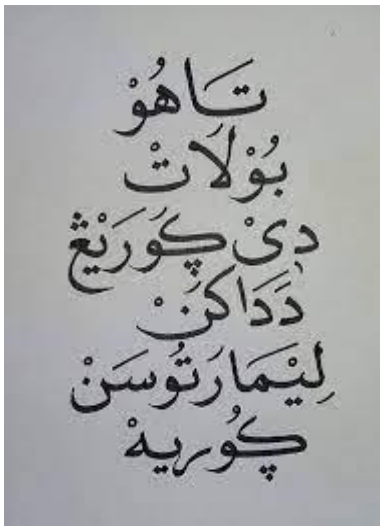 تَاهُوْ
بُوْلَاتْ
دِيْ ڮَوْرَيْڠْ
دَدَاكَنْ
لِيْمَا رَتُوسَنْ
ڮُوْرِيهْ